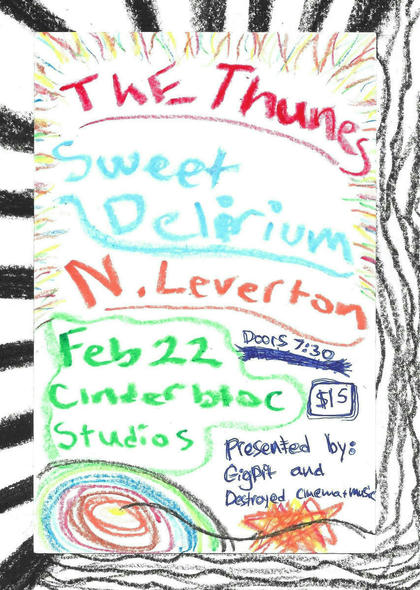 THE Thunes
Sweet
Delirium
N. Leverton
Feb 22
Cinderbloc
Studios
Doors 7:30
$15
Presented by:
GigPit and
Destroyed cinema + music